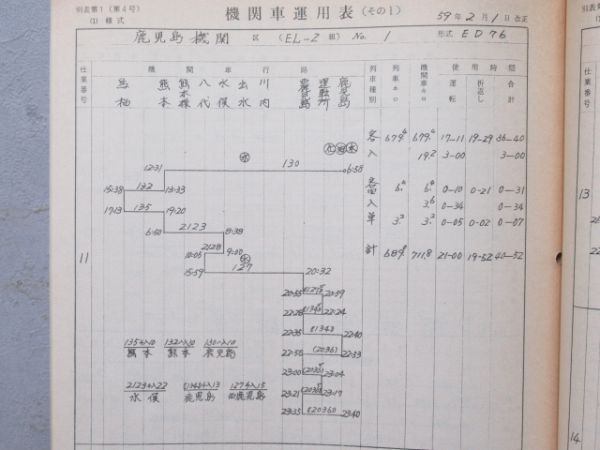 別表第1(第4号)
(1) 様式
機関車運用表(その1)
59年2月1日改正
鹿児島機関区(EL-2組) No. 1
形式 ED76
仕業番号
機関車行路
列車種別
列車キロ
機関車キロ
使用時間
運転
折返し
合計
鳥栖
熊本
八代
水俣
出水
川内
鹿児島
客 679.6 679.6 17-11 19-29 36-40
入 19.2 3-00 3-00
0-10 0-21 0-31
入 3.6 0-34 0-34
単 3.3 3.3 0-05 0-02 0-07
計 711.8 21-00 19-52 40-52
12:31 130 6:58
15:38 132 13:33
17:13 135 19:20
6:50 2123 8:38
10:05 2128 9:00
15:59 127 20:32
20:59
22:28 22:24
22:35 (1343) 22:40
22:56 (2036) 22:53
23:00 23:04
23:21 23:17
23:35 (2036) 23:40
11
熊本 熊本 鹿児島
水俣 鹿児島 西鹿児島
仕業番号
13
14